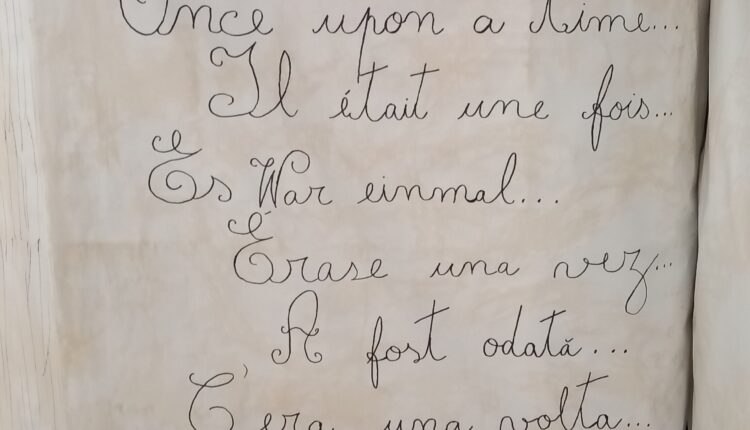 Once upon a time...
Il était une fois...
Es War einmal...
Érase una vez...
A fost odată...
C'era una volta...